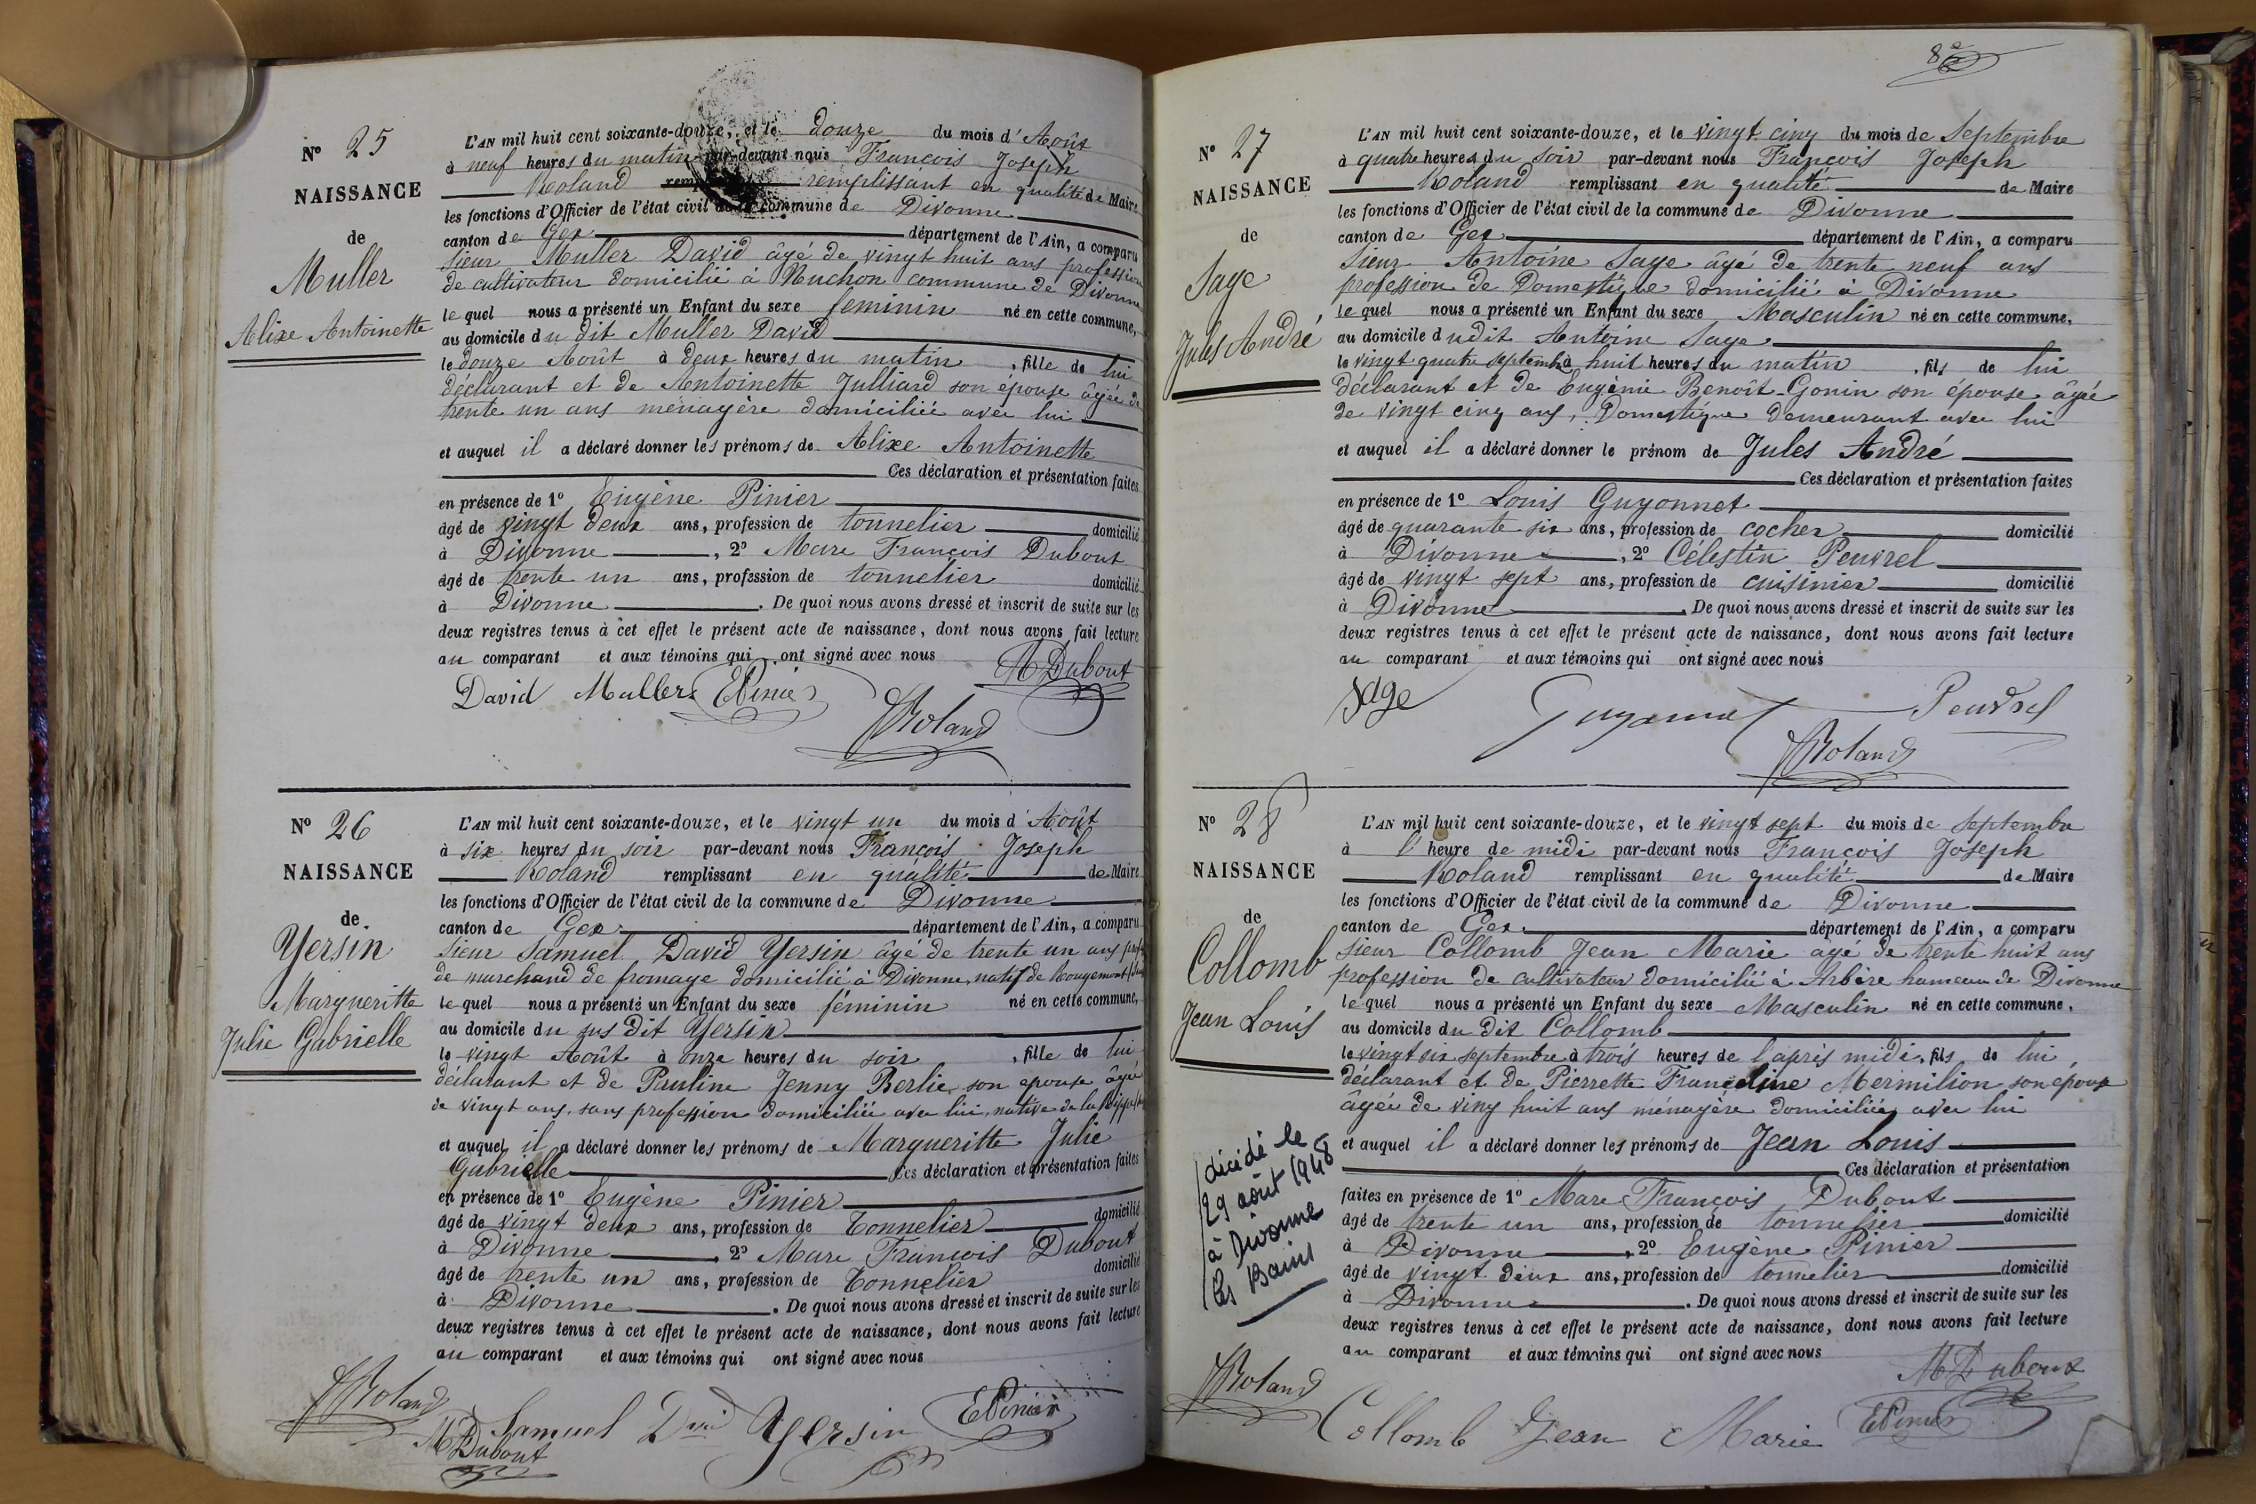 Nº 25
NAISSANCE
de
Muller
Alixe Antoinette
L'AN mil huit cent soixante-douze, et le douze du mois d'Août
à neuf heures du matin par-devant nous François Joseph
Roland remplissant en qualité de Maire
les fonctions d'Officier de l'état civil de la commune de Divonne
canton de Gex département de l'Ain, a comparu
sieur Muller David âgé de vingt huit ans profession
de cultivateur domicilié à Vuchon commune de Divonne
lequel nous a présenté un Enfant du sexe féminin né en cette commune,
au domicile du dit Muller David
le douze Août à deux heures du matin, fille de lui
déclarant et de Antoinette Julliard son épouse âgée de
trente un ans ménagère domiciliée avec lui
et auquel il a déclaré donner les prénoms de Alixe Antoinette
Ces déclaration et présentation faites
en présence de 1º Eugène Pinier
âgé de vingt deux ans, profession de tonnelier domicilié
à Divonne, 2º Marc François Dubout
âgé de trente un ans, profession de tonnelier domicilié
à Divonne. De quoi nous avons dressé et inscrit de suite sur les
deux registres tenus à cet effet le présent acte de naissance, dont nous avons fait lecture
au comparant et aux témoins qui ont signé avec nous
M Dubout
David Muller EPinier
Roland
Nº 26
NAISSANCE
de
Yersin
Margueritte
Julie Gabrielle
L'AN mil huit cent soixante-douze, et le vingt un du mois d'Août
à six heures du soir par-devant nous François Joseph
Roland remplissant en qualité de Maire
les fonctions d'Officier de l'état civil de la commune de Divonne
canton de Gex département de l'Ain, a comparu
sieur Samuel David Yersin âgé de trente un ans prof
de marchand de fromage domicilié à Divonne, natif de Rougemont
lequel nous a présenté un Enfant du sexe féminin né en cette commune,
au domicile du sus dit Yersin
le vingt Août à onze heures du soir, fille de lui
déclarant et de Pauline Jenny Berlie son épouse âgée
de vingt ans, sans profession domiciliée avec lui, native de la
et auquel il a déclaré donner les prénoms de Margueritte Julie
Gabrielle Ces déclaration et présentation faites
en présence de 1º Eugène Pinier
âgé de vingt deux ans, profession de Tonnelier domicilié
à Divonne, 2º Marc François Dubout
âgé de trente un ans, profession de Tonnelier domicilié
à Divonne. De quoi nous avons dressé et inscrit de suite sur les
deux registres tenus à cet effet le présent acte de naissance, dont nous avons fait lecture
au comparant et aux témoins qui ont signé avec nous
Roland
Samuel Dvid Yersin EPinier
M Dubout
Nº 27
NAISSANCE
de
Sage
Jules André
L'AN mil huit cent soixante-douze, et le vingt cinq du mois de Septembre
à quatre heures du soir par-devant nous François Joseph
Roland remplissant en qualité de Maire
les fonctions d'Officier de l'état civil de la commune de Divonne
canton de Gex département de l'Ain, a comparu
sieur Antoine Sage âgé de trente neuf ans
profession de Domestique domicilié à Divonne
lequel nous a présenté un Enfant du sexe Masculin né en cette commune,
au domicile dudit Antoine Sage
le vingt quatre septembre à huit heures du matin, fils de lui
déclarant et de Eugénie Benoît-Gonin son épouse âgée
de vingt cinq ans, Domestique demeurant avec lui
et auquel il a déclaré donner le prénom de Jules André
Ces déclaration et présentation faites
en présence de 1º Louis Guyonnet
âgé de quarante six ans, profession de cocher domicilié
à Divonne, 2º Célestin Peuvrel
âgé de vingt sept ans, profession de cuisinier domicilié
à Divonne. De quoi nous avons dressé et inscrit de suite sur les
deux registres tenus à cet effet le présent acte de naissance, dont nous avons fait lecture
au comparant et aux témoins qui ont signé avec nous
Sage Guyonnet Peuvrel
Roland
Nº 28
NAISSANCE
de
Collomb
Jean Louis
décédé le
29 août 1948
à Divonne
les Bains
L'AN mil huit cent soixante-douze, et le vingt sept du mois de Septembre
à l'heure de midi par-devant nous François Joseph
Roland remplissant en qualité de Maire
les fonctions d'Officier de l'état civil de la commune de Divonne
canton de Gex département de l'Ain, a comparu
sieur Collomb Jean Marie âgé de trente huit ans
profession de cultivateur domicilié à Arbère hameau de Divonne
lequel nous a présenté un Enfant du sexe Masculin né en cette commune,
au domicile du dit Collomb
le vingt six septembre à trois heures de l'après midi, fils de lui
déclarant et de Pierrette Franceline Mermilion son épouse
âgée de ving huit ans ménagère domiciliée avec lui
et auquel il a déclaré donner les prénoms de Jean Louis
Ces déclaration et présentation
faites en présence de 1º Marc François Dubout
âgé de trente un ans, profession de tonnelier domicilié
à Divonne, 2º Eugène Pinier
âgé de vingt deux ans, profession de tonnelier domicilié
à Divonne. De quoi nous avons dressé et inscrit de suite sur les
deux registres tenus à cet effet le présent acte de naissance, dont nous avons fait lecture
au comparant et aux témoins qui ont signé avec nous
M Dubout
Roland
Collomb Jean Marie EPinier